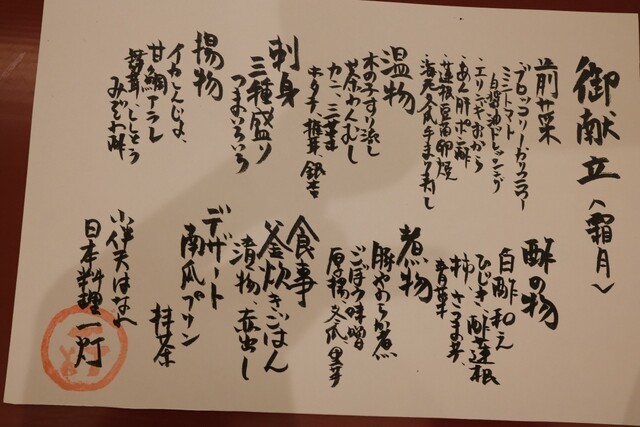 御献立〈霜月〉
前菜
ブロッコリー、カリフラワー
ミニトマト
白醤油ドレッシング
エリンギおから
あん肝ポン酢
蓮根豆富卵焼
海老冬瓜手まり寿し
温物
木の子すり流し
茶わんむし
カニ、三つ葉
ホタテ、椎茸、銀杏
刺身
三種盛り
つまいろいろ
揚物
イカしんじょ
甘鯛アラレ
舞茸、ししとう
みぞれ酢
酢の物
白酢和え
ひじき、酢蓮根
柿、さつま芋
青菜
煮物
豚やわらか煮
ごぼう味噌
厚揚、冬瓜、里芋
食事
釜炊きごはん
漬物、赤出し
デザート
南瓜プリン
抹茶
小伴天はなれ
日本料理一灯